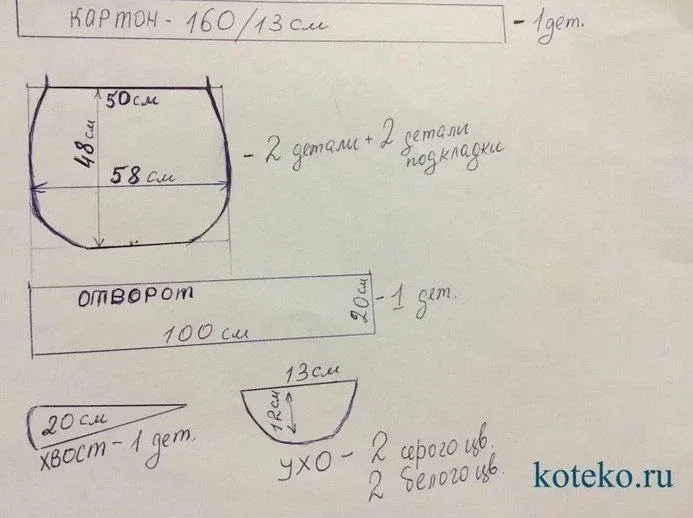 КАРТОН - 160/13 см
- 1 дет.
50 см
48 см
58 см
- 2 детали + 2 детали
подкладки
ОТВОРОТ
20 см
- 1 дет.
100 см
20 см
ХВОСТ - 1 дет.
13 см
12 см
УХО - 2 серого цв.
2 белого цв.
koteko.ru